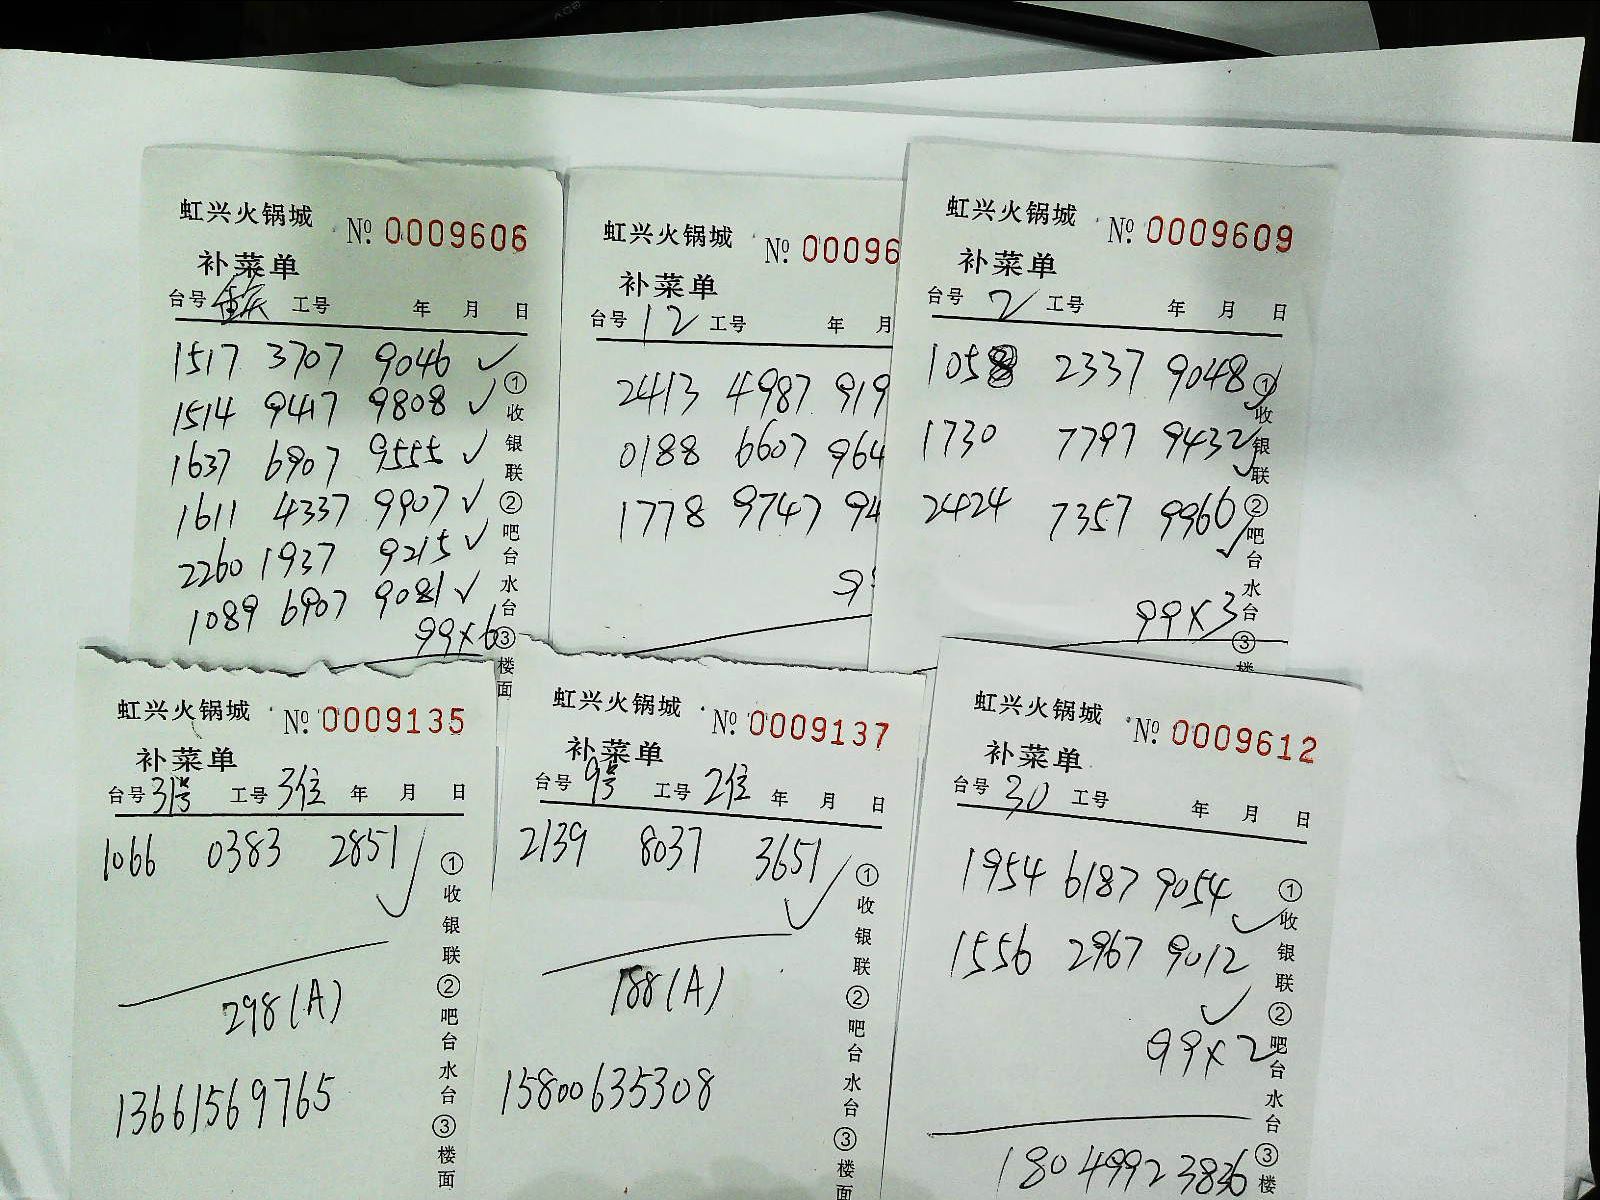 虹兴火锅城 №. 0009606
补菜单
台号 重庆 工号 年 月 日
1517 3707 9046 ✓
1514 9417 9808 ✓
1637 6907 9555 ✓
1611 4337 9907 ✓
2260 1937 9215 ✓
1089 6907 9081 ✓
99×6
①收银联②吧台水台③楼面
虹兴火锅城 №. 00096
补菜单
台号 12 工号 年 月
2413 4987 919
0188 6607 964
1778 9747 94
虹兴火锅城 №. 0009609
补菜单
台号 2 工号 年 月 日
1058 2337 9048 ✓
1730 7797 9432 ✓
2424 7357 9966 ✓
99×3
①收银联②吧台水台③楼
虹兴火锅城 №. 0009135
补菜单
台号 31号 工号 3位 年 月 日
1066 0383 2851 ✓
298(A)
13661569765
①收银联②吧台水台③楼面
虹兴火锅城 №. 0009137
补菜单
台号 9号 工号 2位 年 月 日
2139 8037 3651 ✓
188(A)
15800635308
①收银联②吧台水台③楼面
虹兴火锅城 №. 0009612
补菜单
台号 30 工号 年 月 日
1954 6187 9054 ✓
1556 2967 9012 ✓
99×2
18049923836
①收银联②吧台水台③楼